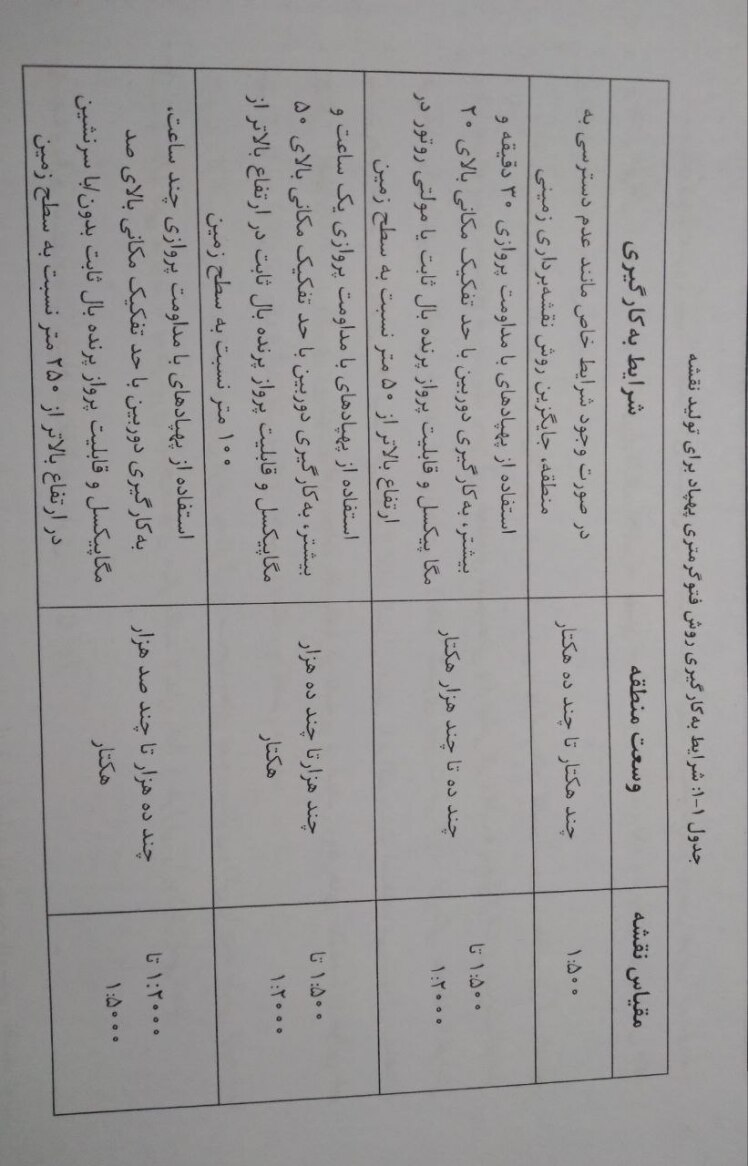 جدول ۱-۱: شرایط به‌کارگیری روش فتوگرمتری پهپاد برای تولید نقشه
مقیاس نقشه
وسعت منطقه
شرایط به‌کارگیری
۱:۵۰۰
چند هکتار تا چند ده هکتار
در صورت وجود شرایط خاص مانند عدم دسترسی به
منطقه، جایگزین روش نقشه‌برداری زمینی
۱:۵۰۰ تا
۱:۲۰۰۰
چند ده تا چند هزار هکتار
استفاده از پهپادهای با مداومت پروازی ۳۰ دقیقه و
بیشتر، به‌کارگیری دوربین با حد تفکیک مکانی بالای ۲۰
مگا پیکسل و قابلیت پرواز پرنده بال ثابت یا مولتی روتور در
ارتفاع بالاتر از ۵۰ متر نسبت به سطح زمین
۱:۵۰۰ تا
۱:۲۰۰۰
چند هزار تا چند ده هزار
هکتار
استفاده از پهپادهای با مداومت پروازی یک ساعت و
بیشتر، به‌کارگیری دوربین با حد تفکیک مکانی بالای ۵۰
مگاپیکسل و قابلیت پرواز پرنده بال ثابت در ارتفاع بالاتر از
۱۰۰ متر نسبت به سطح زمین
۱:۲۰۰۰ تا
۱:۵۰۰۰
چند ده هزار تا چند صد هزار
هکتار
استفاده از پهپادهای با مداومت پروازی چند ساعت،
به‌کارگیری دوربین با حد تفکیک مکانی بالای صد
مگاپیکسل و قابلیت پرواز پرنده بال ثابت بدون/با سرنشین
در ارتفاع بالاتر از ۲۵۰ متر نسبت به سطح زمین